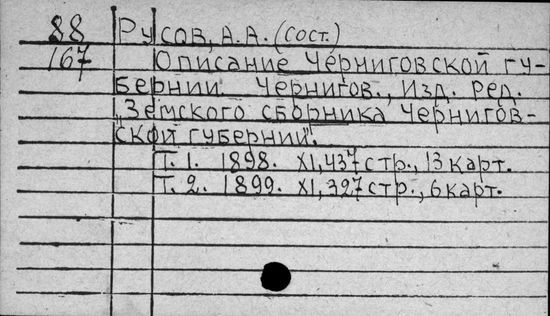 88 Русов, А.А. (сост.)
167 Описание Черниговской гу-
бернии. Чернигов., Изд. ред.
"Земского сборника Чернигов-
ской губернии".
Т. 1. 1898. XI, 437 стр., 13 карт.
Т. 2. 1899. XI, 327 стр., 6 карт.